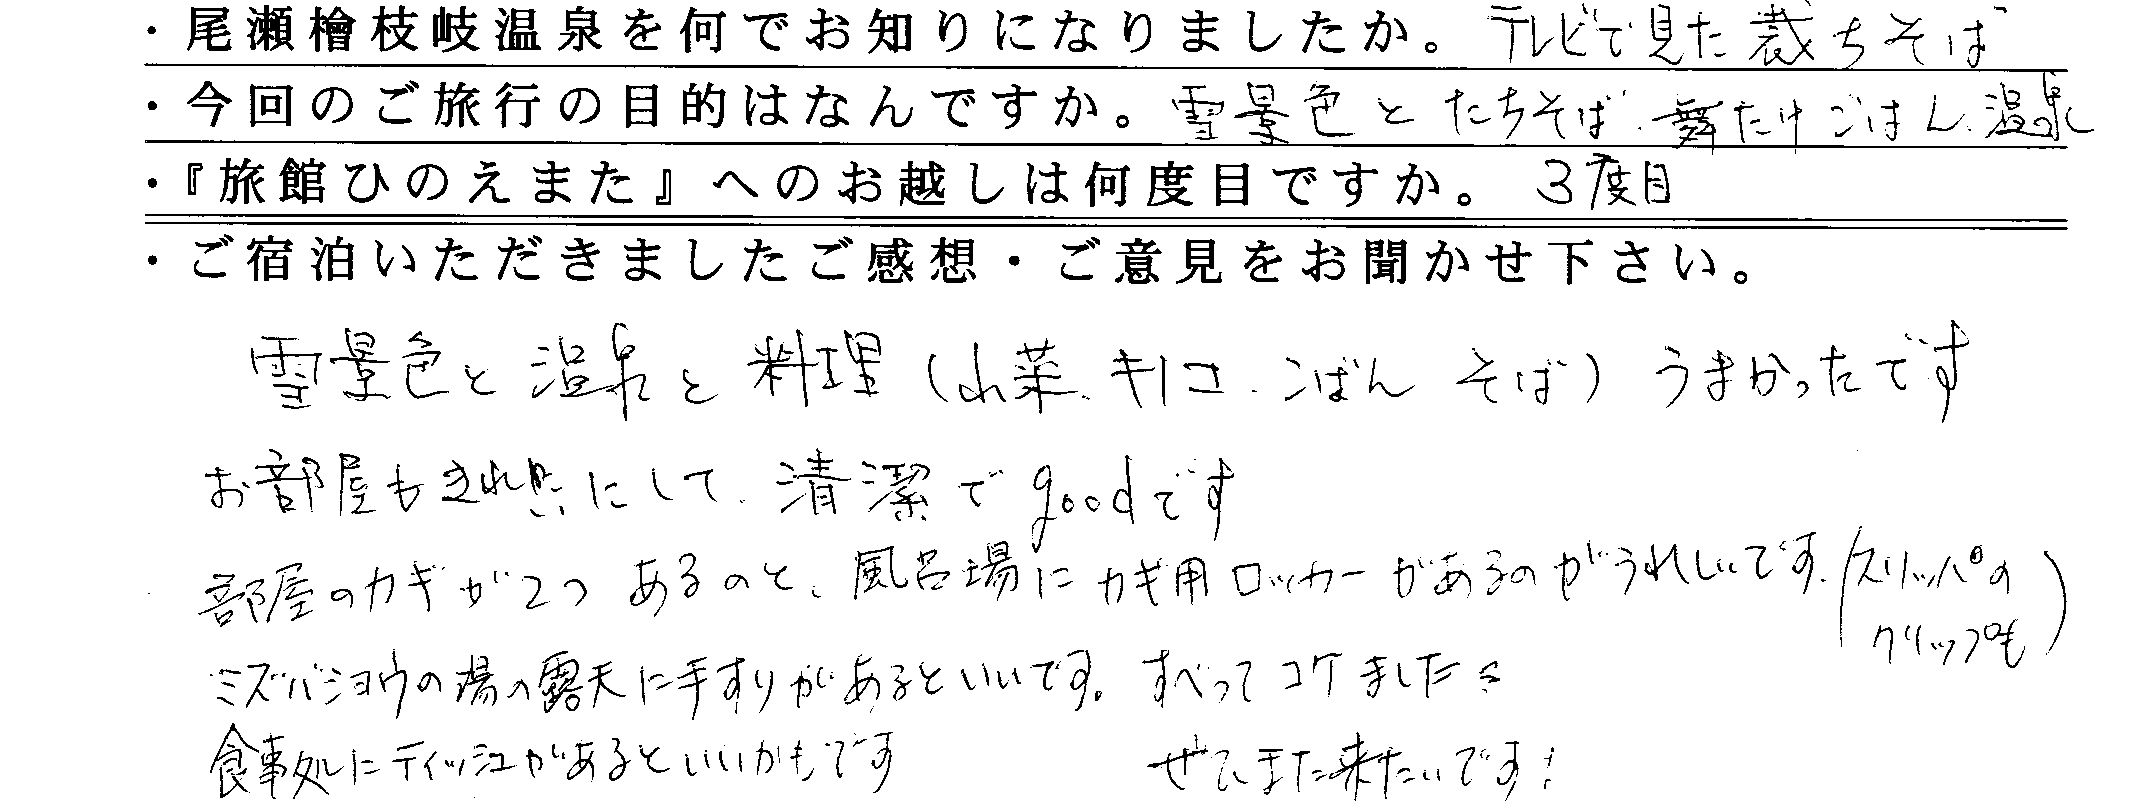 ・尾瀬檜枝岐温泉を何でお知りになりましたか。テレビで見た裁ちそば
・今回のご旅行の目的はなんですか。雪景色とたちそば、舞たけごはん、温泉
・『旅館ひのえまた』へのお越しは何度目ですか。3度目
・ご宿泊いただきましたご感想・ご意見をお聞かせ下さい。
雪景色と温泉と料理(山菜、キノコ、ごはん そば)うまかったです
お部屋もきれいにして、清潔でgoodです
部屋のカギが2つあるのと、風呂場にカギ用ロッカーがあるのがうれしいです。(スリッパの
クリップも)
ミズバショウの湯の露天に手すりがあるといいです。すべってコケました
食事処にティッシュがあるといいかもです ぜひまた来たいです!